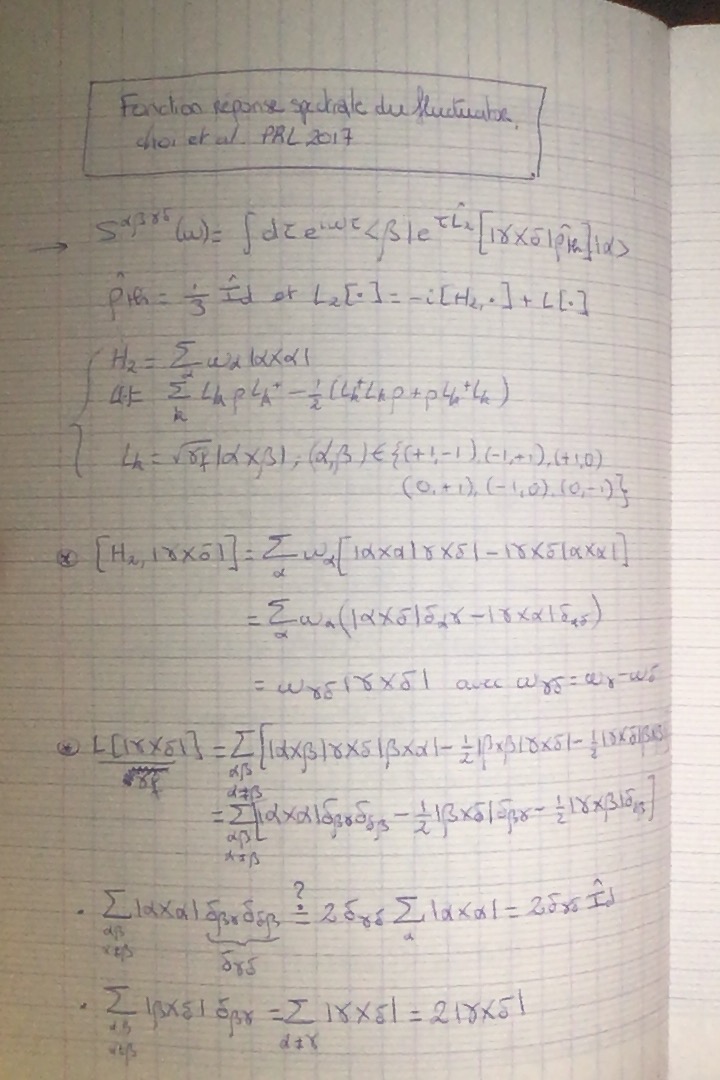 Fonction réponse spectrale du fluctuator,
choi et al. PRL 2017
→ S^{αβγδ}(ω) = ∫dτ e^{iωτ} <β|e^{τL̂₂}[|γ×δ|ρ̂_{th}]|α>
ρ̂_{th} = 1/3 Îd et L₂[·] = -i[H₂,·] + L[·]
H₂ = Σ_α ω_α|α×α|
Σ_k L_k ρ L_k⁺ - 1/2 (L_k⁺L_k ρ + ρL_k⁺L_k)
L_k = √γ_f |α×β|, (α,β) ∈ {(+1,-1),(-1,+1),(+1,0)
(0,+1),(-1,0),(0,-1)}
⊛ [H₂,|γ×δ|] = Σ_α ω_α[|α×α|γ×δ| - |γ×δ|α×α|]
= Σ_α ω_α(|α×δ|δ_{αγ} - |γ×α|δ_{αδ})
= ω_{γδ}|γ×δ| avec ω_{γδ} = ω_γ - ω_δ
⊛ L[|γ×δ|]/γ_f = Σ_{αβ α≠β} [|α×β|γ×δ|β×α| - 1/2|β×β|γ×δ| - 1/2|γ×δ|β×β|
= Σ_{αβ α≠β} [|α×α|δ_{βγ}δ_{δβ} - 1/2|β×δ|δ_{βγ} - 1/2|γ×β|δ_{δβ}]
· Σ_{αβ α≠β} |α×α| δ_{βγ}δ_{δβ} ≟ 2δ_{γδ} Σ_α |α×α| = 2δ_{γδ} Îd
δ_{γδ}
· Σ_{αβ α≠β} |β×δ| δ_{βγ} = Σ_{α≠γ} |γ×δ| = 2|γ×δ|